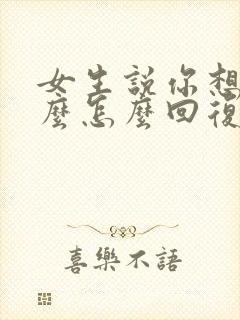 女生説你想
麼怎麼回復
喜樂不語